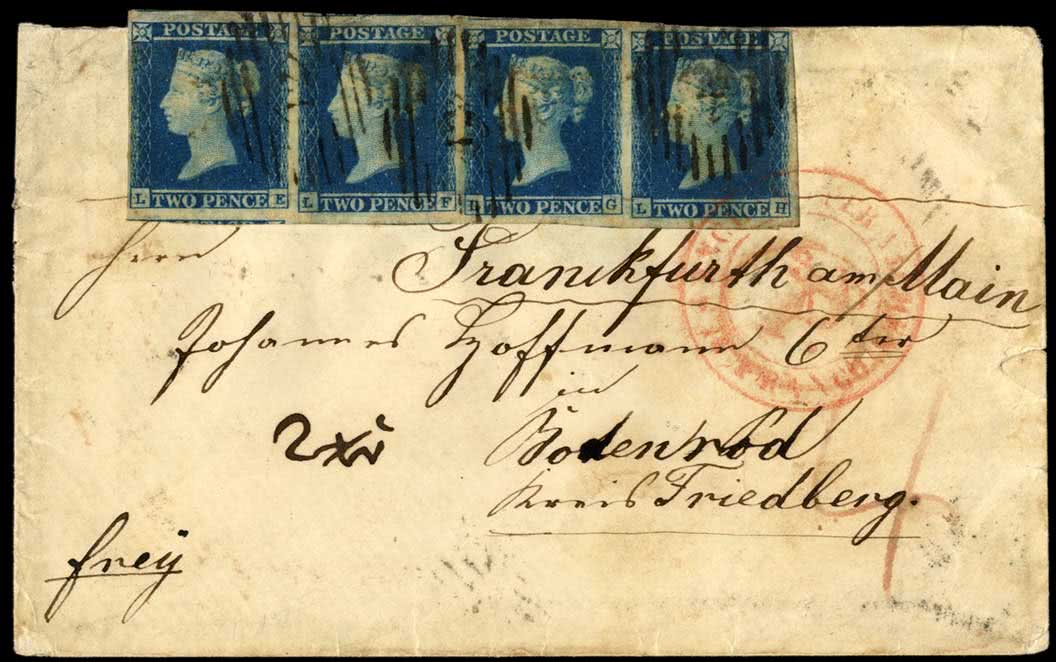 POSTAGE POSTAGE POSTAGE POSTAGE
L TWO PENCE E L TWO PENCE F L TWO PENCE G L TWO PENCE H
Herrn
Franckfurth am Main
Johannes Hoffmann 6ter
in
Bodenrod
2xr
Kreis Friedberg.
frey